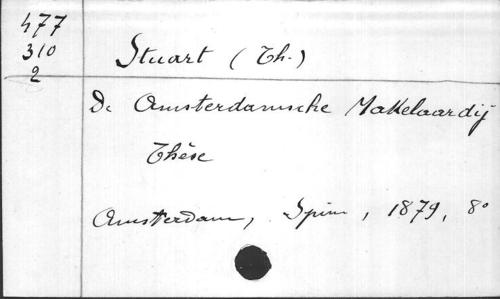 477
310
2
Stuart (Th.)
De Amsterdamsche Makelaardij
Thèse
Amsterdam, Spin, 1879, 8°